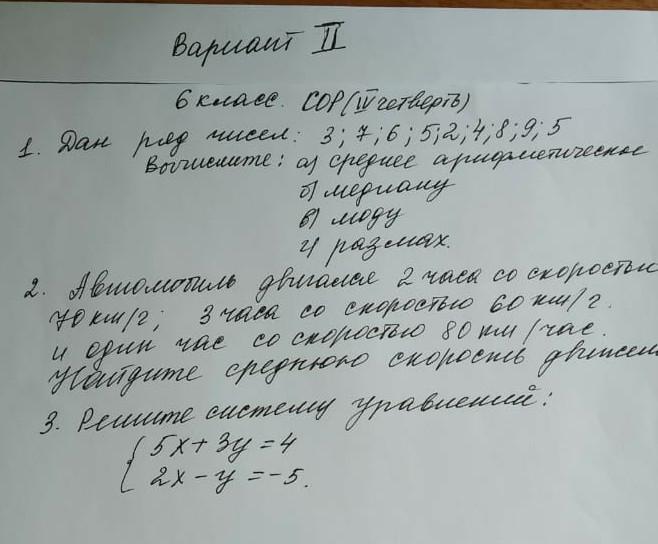 Вариант II
6 класс. СОР (IV четверть)
1. Дан ряд чисел: 3; 7; 6; 5; 2; 4; 8; 9; 5
Вычислите: а) среднее арифметическое
б) медиану
в) моду
г) размах.
2. Автомобиль двигался 2 часа со скоростью
70 км/г; 3 часа со скоростью 60 км/г.
и один час со скоростью 80 км/час.
Найдите среднюю скорость движен
3. Решите систему уравнений:
5x + 3y = 4
2x - y = -5.